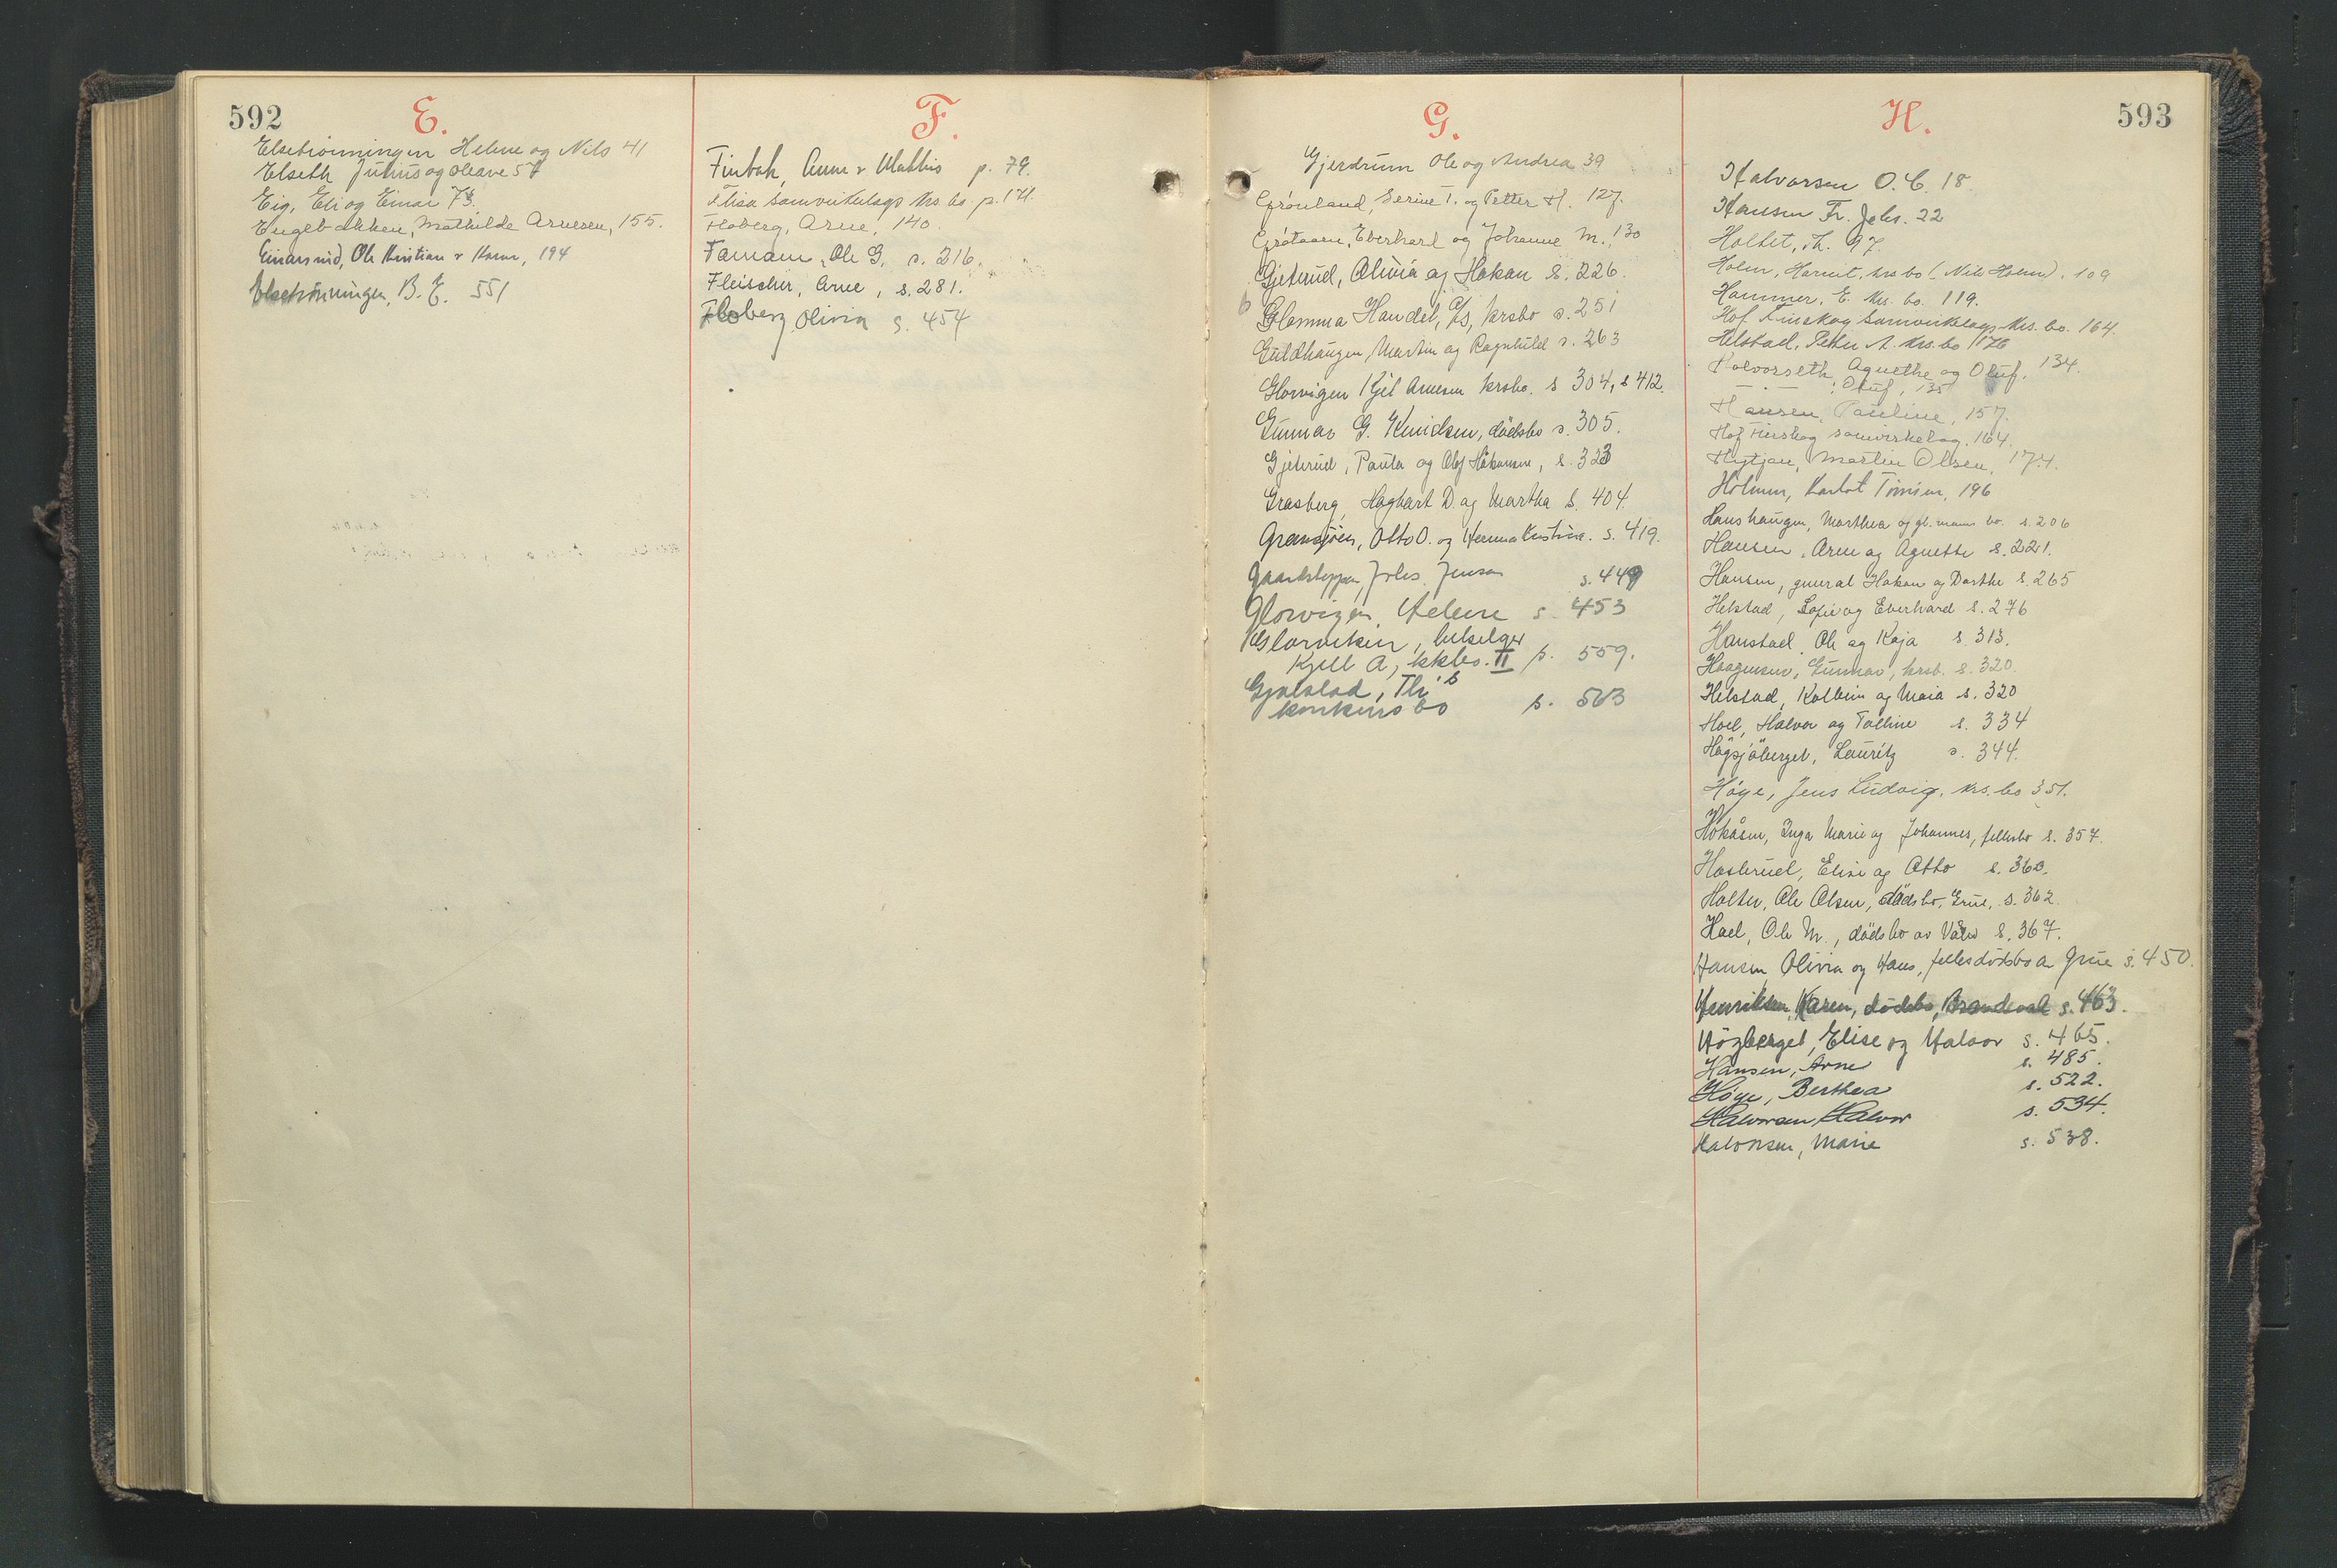 592
E.
Elsetrönningen Helene og Nils 41
Elseth Julius og Oleave 57
Eig, Eli og Einar 73.
Engebakken, Mathilde Arnesen, 155.
Einarsrud, Ole Kristian & Karen, 194
Elsetrönningen, B. E. 551
F.
Finbak, Anne & Mathis p. 79.
Flisa Samvirkelags krs. bo. p. 171.
Floberg, Arne, 140.
Ole G. s. 216.
Fleischer, Arne, s. 281.
Floberg Olivia s. 454
G.
Gjerdrum Ole og Andrea 39
Grönland, Serine T. og Petter H. 127.
Eberhard og Johanne M., 130
Gjeterud, Olivia og Håkan s. 226.
Glomma Handel, krsbo s. 251
Guldhaugen, Martin og Ragnhild s. 263
Glorvigen Kjel Arnesen krsbo. s 304, s 412.
Gunnar G. Knudsen, dödsbo s. 305.
Gjeterud, Paula og Olof Håkansen, s. 323
Grasberg, Haghart D. og Martha s. 404.
Gransjöen, Otto O. og Kristine. s. 419.
Johs. Jensen s. 449
Glorvigen, Helene s. 453
Glorviken,
Kjell A, kkbo. II s. 559.
Th's
konkursbo s. 563
H.
593
Halvorsen O. C. 18.
Hansen Fr. Johs. 22
Holtet, Th. 97.
Holm, krs bo (Nils Holm). 109
Hammer, E. krs. bo. 119.
Hof Finskog Samvirkelags krs. bo. 164.
Helstad, Peder A. krs. bo 176
Halvorseth, Agnethe og Oluf, 134.
— " — , Oluf, 135
Hansen, Pauline, 157.
Hof Finskog samvirkelag. 164.
Hytjan, Martin Olsen, 174.
Holmen, 196
Hanshaugen, Marthea og gl. manns bo. s. 206
Hansen, Arne og Agnethe s. 221.
Hansen, gunerat Håkan og Dorthe s. 265
Helstad, Sofie og Everhard s. 276
Hanstad, Ole og Kaja s. 313.
Haagensen, Gunnar, krsb. s. 320.
Helstad, Kolbein og Maia s. 320
Hoel, Halvor og Talline s. 334
Högsjöberget, Lauritz s. 344.
Höye, Jens Ludvig, krs. bo 351.
Hokåsen, Inga Marie og Johannes, fellesbo s. 357.
Hasterud, Elise og Otto s. 360.
Holter, Ole Olsen, dödsbo, Grue, s. 362.
Hoel, Ole M., dödsbo av Våler s. 367.
Hansen Olivia og Hans, felles dödsbo av Grue s. 450.
Henriksen, Karen, dödsbo, Brandval s. 463.
Högberget, Elise og Halvor s. 465.
Hansen, Arne s. 485.
Höye, Berthea s. 522.
Halvorsen Halvor s. 534.
Halvorsen, Marie s. 538.